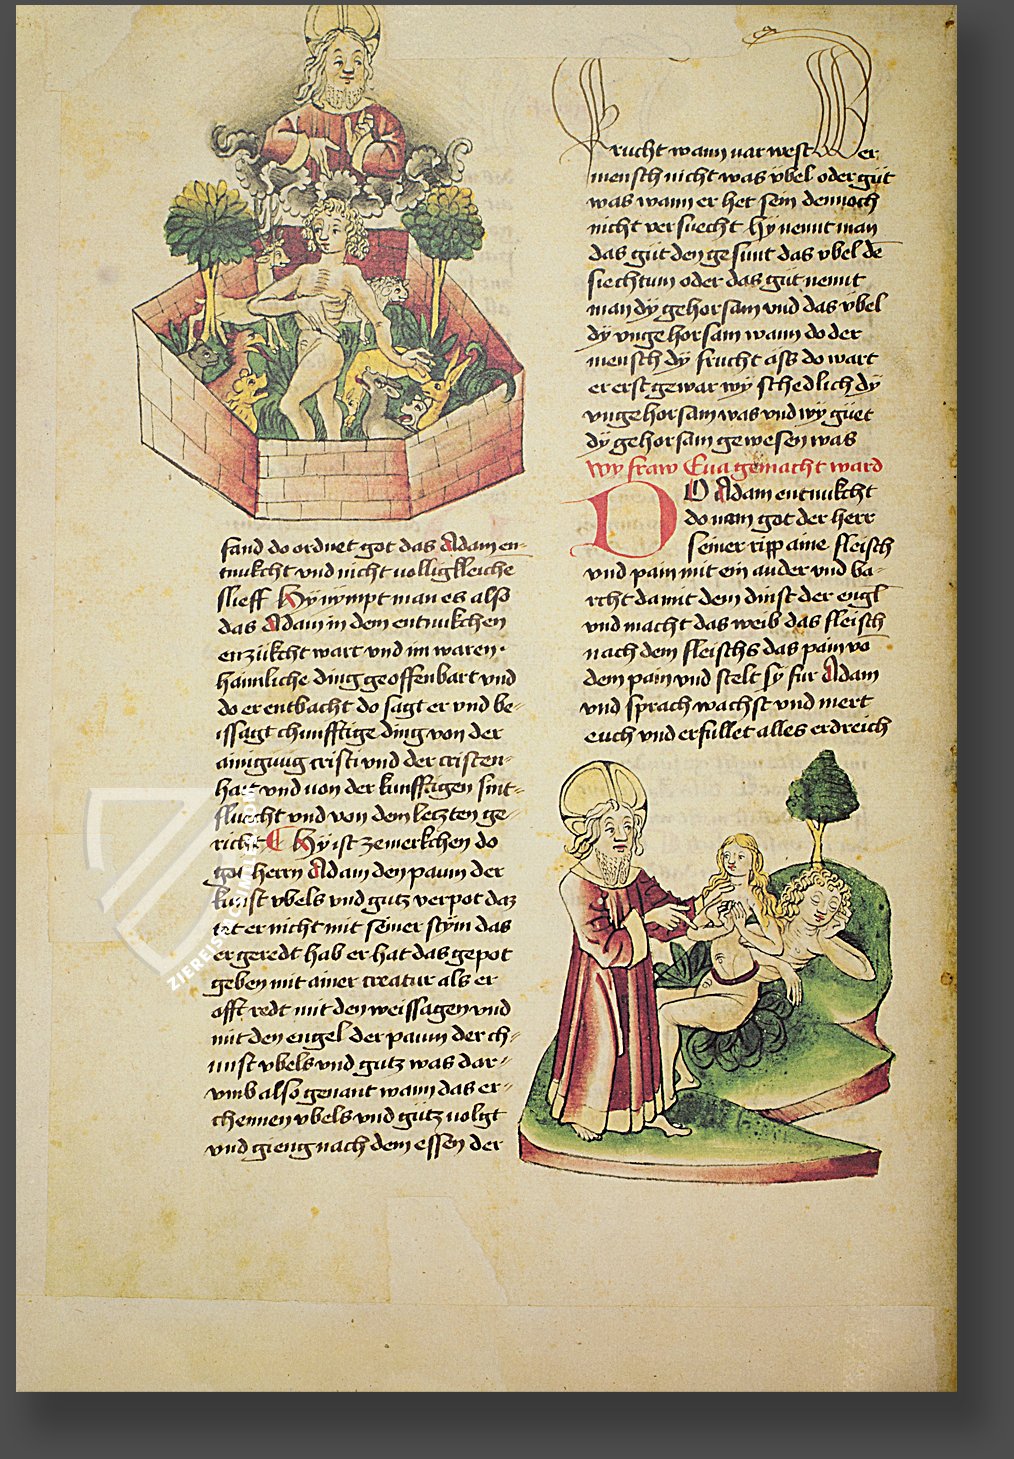 fand do ordnet got das Adam en-
tnukcht vnd nicht volligkleiche
slieff Hy nympt man es also
das Adam in dem entnukchen
enzükcht wart vnd im waren
haimliche ding geoffenbart vnd
do er entbacht do sagt er vnd be-
issagt chunfftige ding von der
ainigung cristi vnd der cristen-
hait vnd von der kunfftigen sint-
fluecht vnd von dem leczten ge-
richt Hy ist zemerkchen do
got herrn Adam den paum der
kunst vbels vnd gutz verpot daz
tet er nicht mit seiner stym das
er geredt hab er hat das gepot
geben mit ainer creatur als er
offt redt mit den weissagen vnd
mit den engel der paum der ch-
unst vbels vnd gutz was dar-
vmb also genant wann das er-
chennen vbels vnd gutz volgt
vnd gieng nach dem essen der
frucht wann var west Der
mensch nicht was vbel oder gut
was wann er het sein dennoch
nicht versuecht Hy nennt man
das gut den gesunt das vbel de
siechtum oder das gut nennt
man dy gehorsam vnd das vbel
dy vngehorsam wann do der
mensch dy frucht ass do wart
er erst gewar wy schedlich dy
vngehorsam was vnd wy guet
dy gehorsam gewesen was
wy fraw Eua gemacht ward
DO Adam entnukcht
do nam got der herr
seiner ripp aine fleisch
vnd pain mit ein ander vnd ba-
rcht da mit dem dinst der engl
vnd macht das weib das fleisch
nach dem fleischs das pain vo
dem pain vnd stelt sy fur Adam
vnd sprach wachst vnd mert
euch vnd erfullet alles erdreich